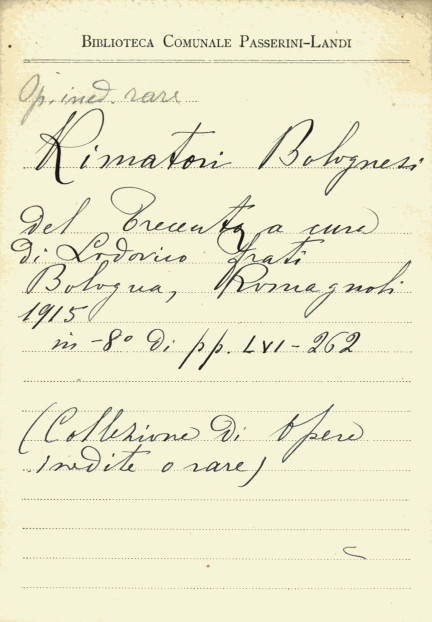 BIBLIOTECA COMUNALE PASSERINI-LANDI
Op. ined. rare
Rimatori Bolognesi
del Trecento, a cura
di Lodovico Frati
Bologna, Romagnoli
1915
in-8° di pp. LVI-262
(Collezione di Opere
inedite o rare)